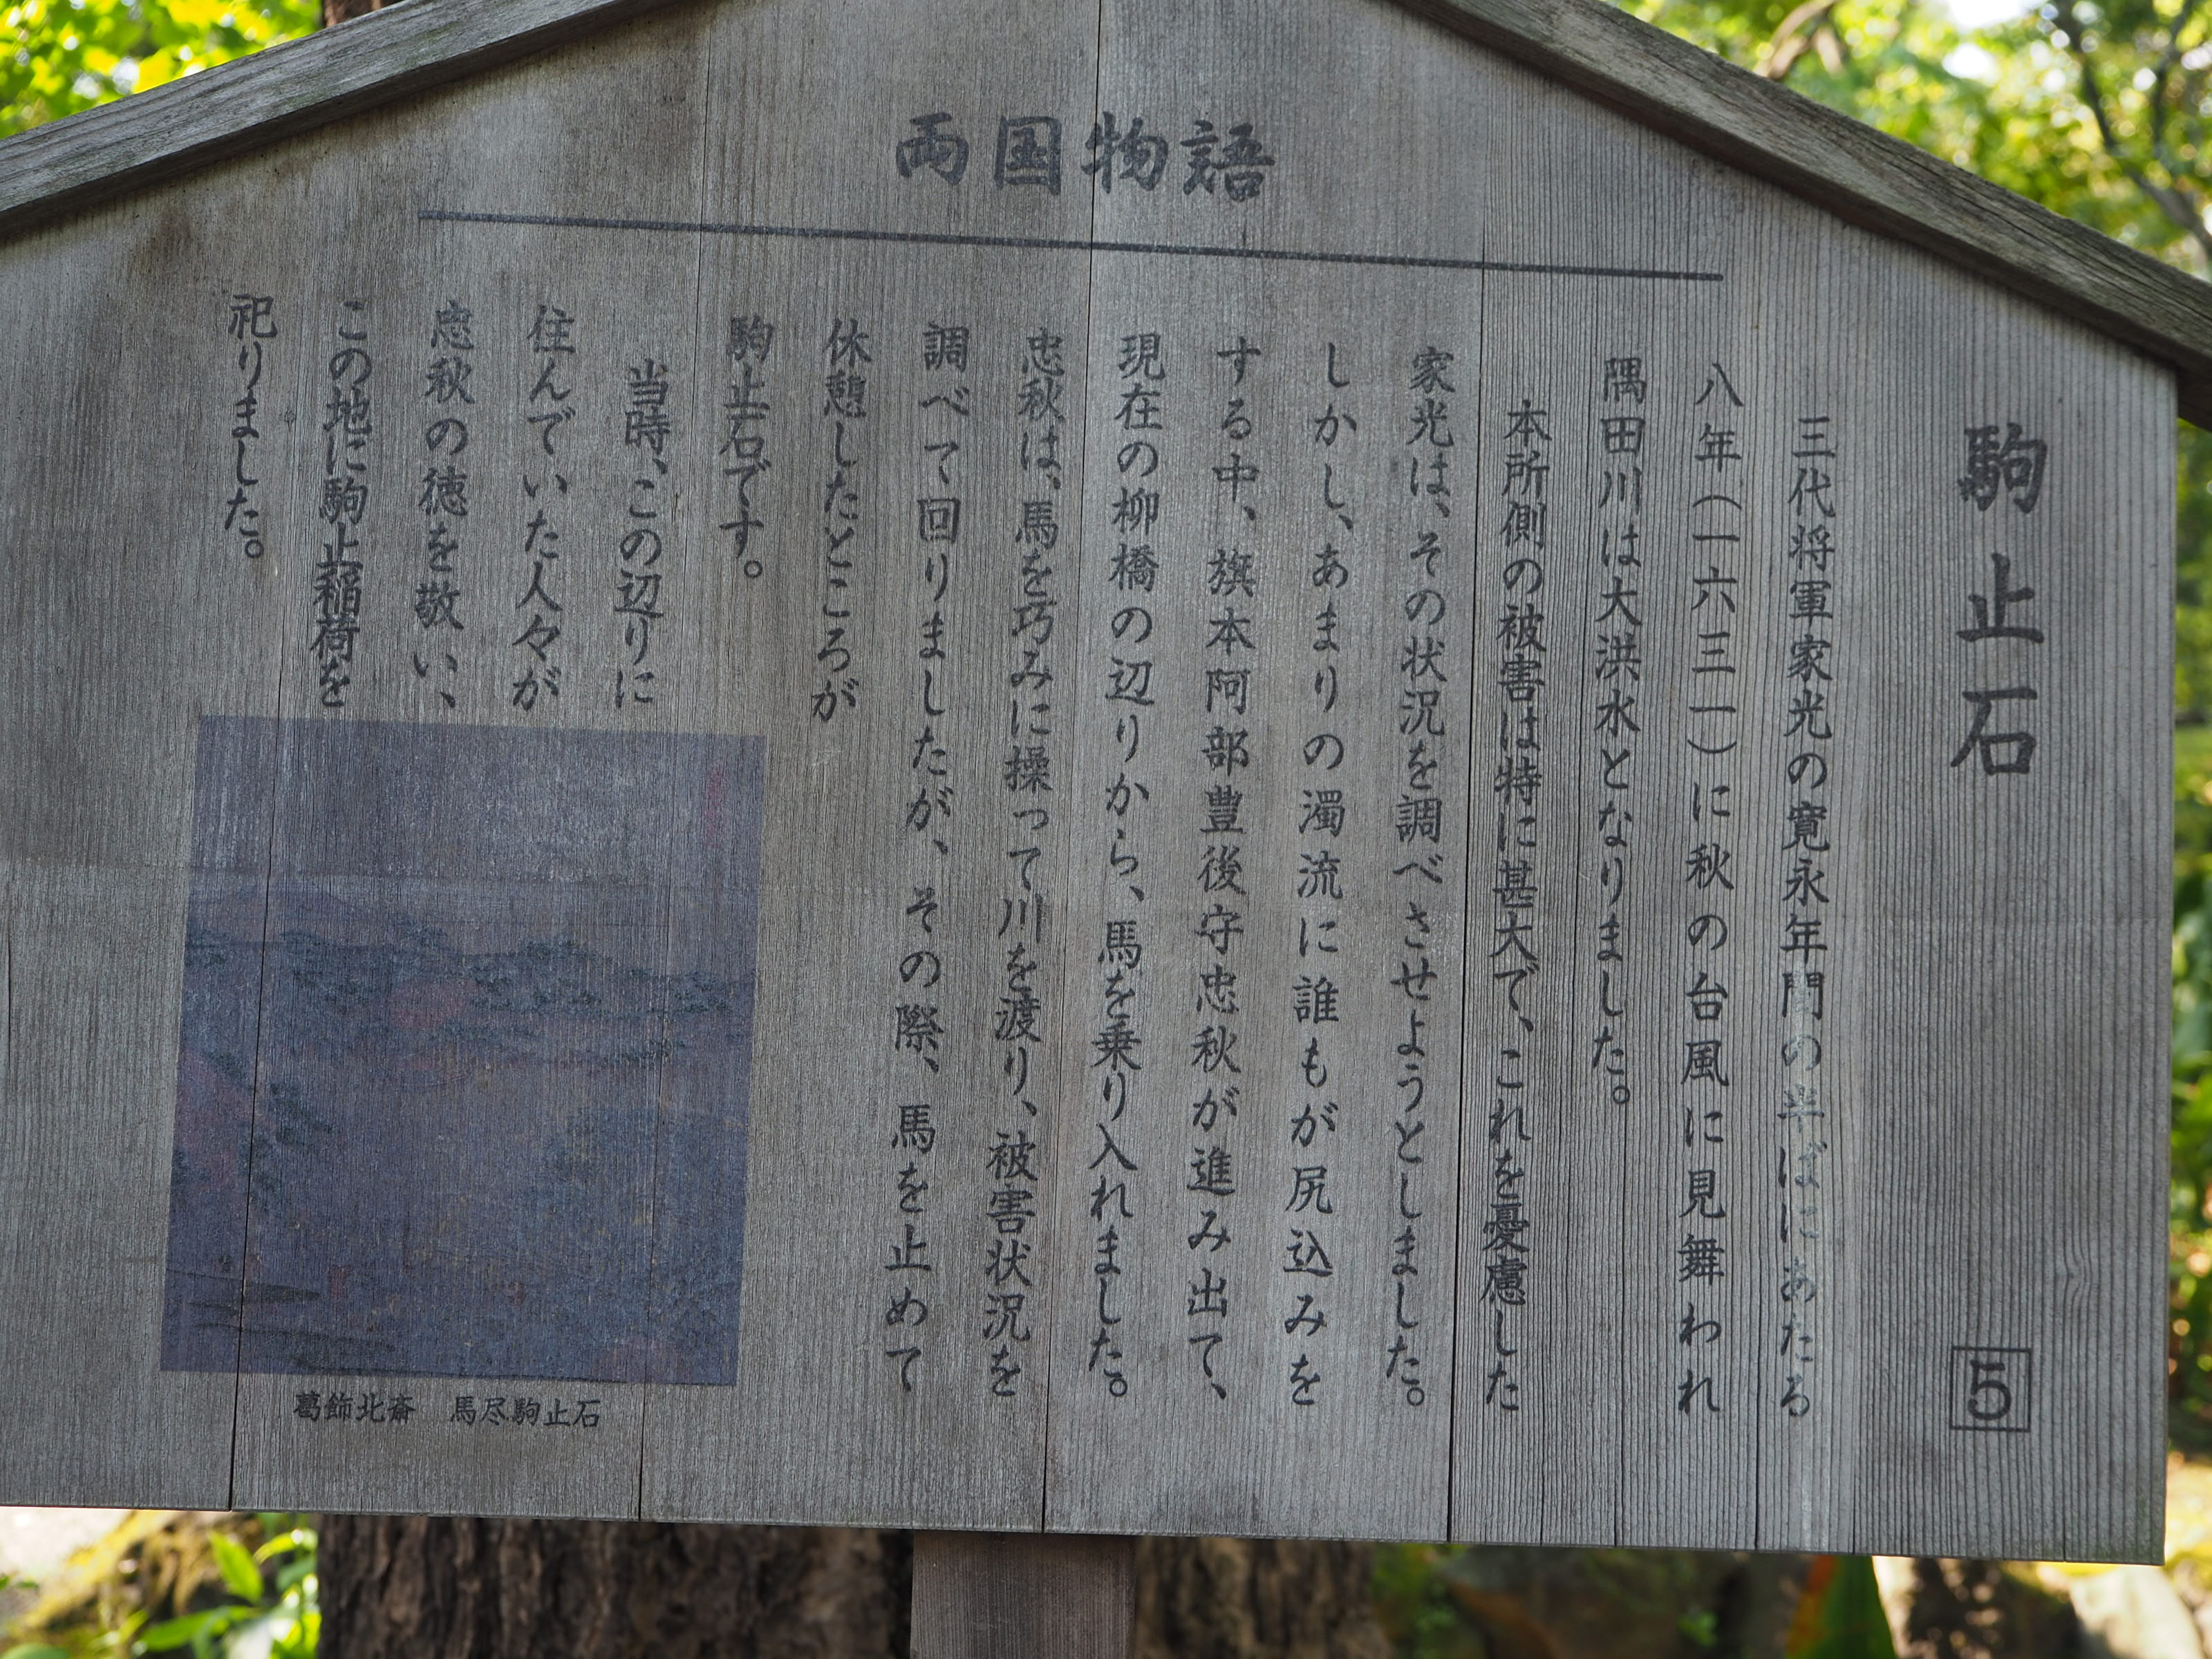 両国物語
駒止石
5
三代将軍家光の寛永年間の半ばにあたる
八年(一六三一)に秋の台風に見舞われ
隅田川は大洪水となりました。
本所側の被害は特に甚大で、これを憂慮した
家光は、その状況を調べさせようとしました。
しかし、あまりの濁流に誰もが尻込みを
する中、旗本阿部豊後守忠秋が進み出て、
現在の柳橋の辺りから、馬を乗り入れました。
忠秋は、馬を巧みに操って川を渡り、被害状況を
調べて回りましたが、その際、馬を止めて
休憩したところが
駒止石です。
当時、この辺りに
住んでいた人々が
忠秋の徳を敬い、
この地に駒止稲荷を
祀りました。
葛飾北斎 馬尽駒止石